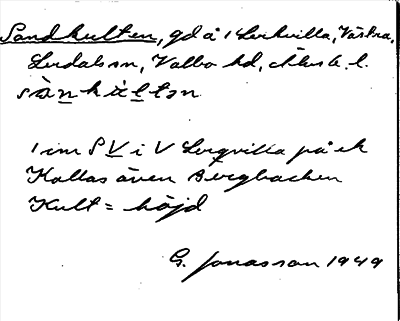 Sandkulten, gd å 1 Lerkvilla, Västra,
Lerdalssn, Valbo hd, Älvsb. l.
sànkùltən
1 im S V i V Lergvilla på ek
Kallas även Bergbacken
Kult = höjd
G. Jonasson 1949